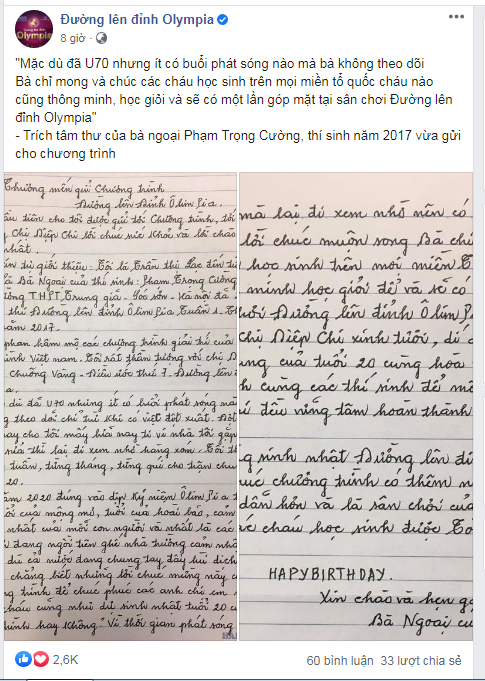 Đường lên đỉnh Olympia
8 giờ
"Mặc dù đã U70 nhưng ít có buổi phát sóng nào mà bà không theo dõi
Bà chỉ mong và chúc các cháu học sinh trên mọi miền tổ quốc cháu nào
cũng thông minh, học giỏi và sẽ có một lần góp mặt tại sân chơi Đường lên
đỉnh Olympia"
- Trích tâm thư của bà ngoại Phạm Trọng Cường, thí sinh năm 2017 vừa gửi
cho chương trình
Thương mến gửi Chương trình
Đường lên Đỉnh Ôlimpia.
đầu tiên cho tôi được gửi tới Chương trình, tới
Chị Diệp Chi lời chúc sức khỏe và lời chào
nhất.
xin tự giới thiệu: Tôi là Trần thị Lạc đến từ
là Bà Ngoại của thí sinh: Phạm Trọng Cường
ường THPT Trung giã - Sóc sơn - Hà nội đã
thi Đường lên đỉnh Ôlimpia tuần 1 - T
năm 2017.
phan hâm mộ các chương trình giải trí của
hình Việt nam. Tôi rất thần tượng với chị D
Chuông Vàng - Điều ước thứ 7. Đường lên đ
a.
dù đã U70 nhưng ít có buổi phát sóng mà
g theo dõi chỉ trừ khi có việt đột xuất. Đột
hay cho tôi máy hòa may ti vi nhà tôi gặp
nữa thì lại đi xem nhờ hàng xóm. Tôi th
tuần, từng tháng, từng quí cho trận chu
20.
năm 2020 đúng vào dịp kỷ niệm Ôlimpia t
tuổi của mộng mơ, tuổi của hoài bão, cảm
nhất của mỗi con người và nhất là các
i đang ngồi trên ghế nhà trường cảm nhậ
dù cả nước đang chung tay đẩy lùi dịch
chẳng biết những lời chúc miệng này c
ng trình để chúc phúc các anh chị em
cháu cũng như dự sinh nhật tuổi 20 c
trình hay không. Vì thời gian phát sóng
mà lại đi xem nhờ nên có
lời chúc muộn song Bà chỉ
học sinh trên mọi miền T
minh học giỏi để và sẽ có
với Đường lên đỉnh Ôlimp
chị Diệp Chi xinh tươi, dí d
ung của tuổi 20 cùng hòa
h cùng các thí sinh để mỗ
u đều vững tâm hoàn thành
g sinh nhật Đường lên đỉ
úc chương trình có thêm n
dẫn hơn và là sân chơi của
ve cháu học sinh được Tổ
HAPYBIRTHDAY.
Xin chào và hẹn gặ
Bà Ngoại cu
2,6K
60 bình luận 33 lượt chia sẻ